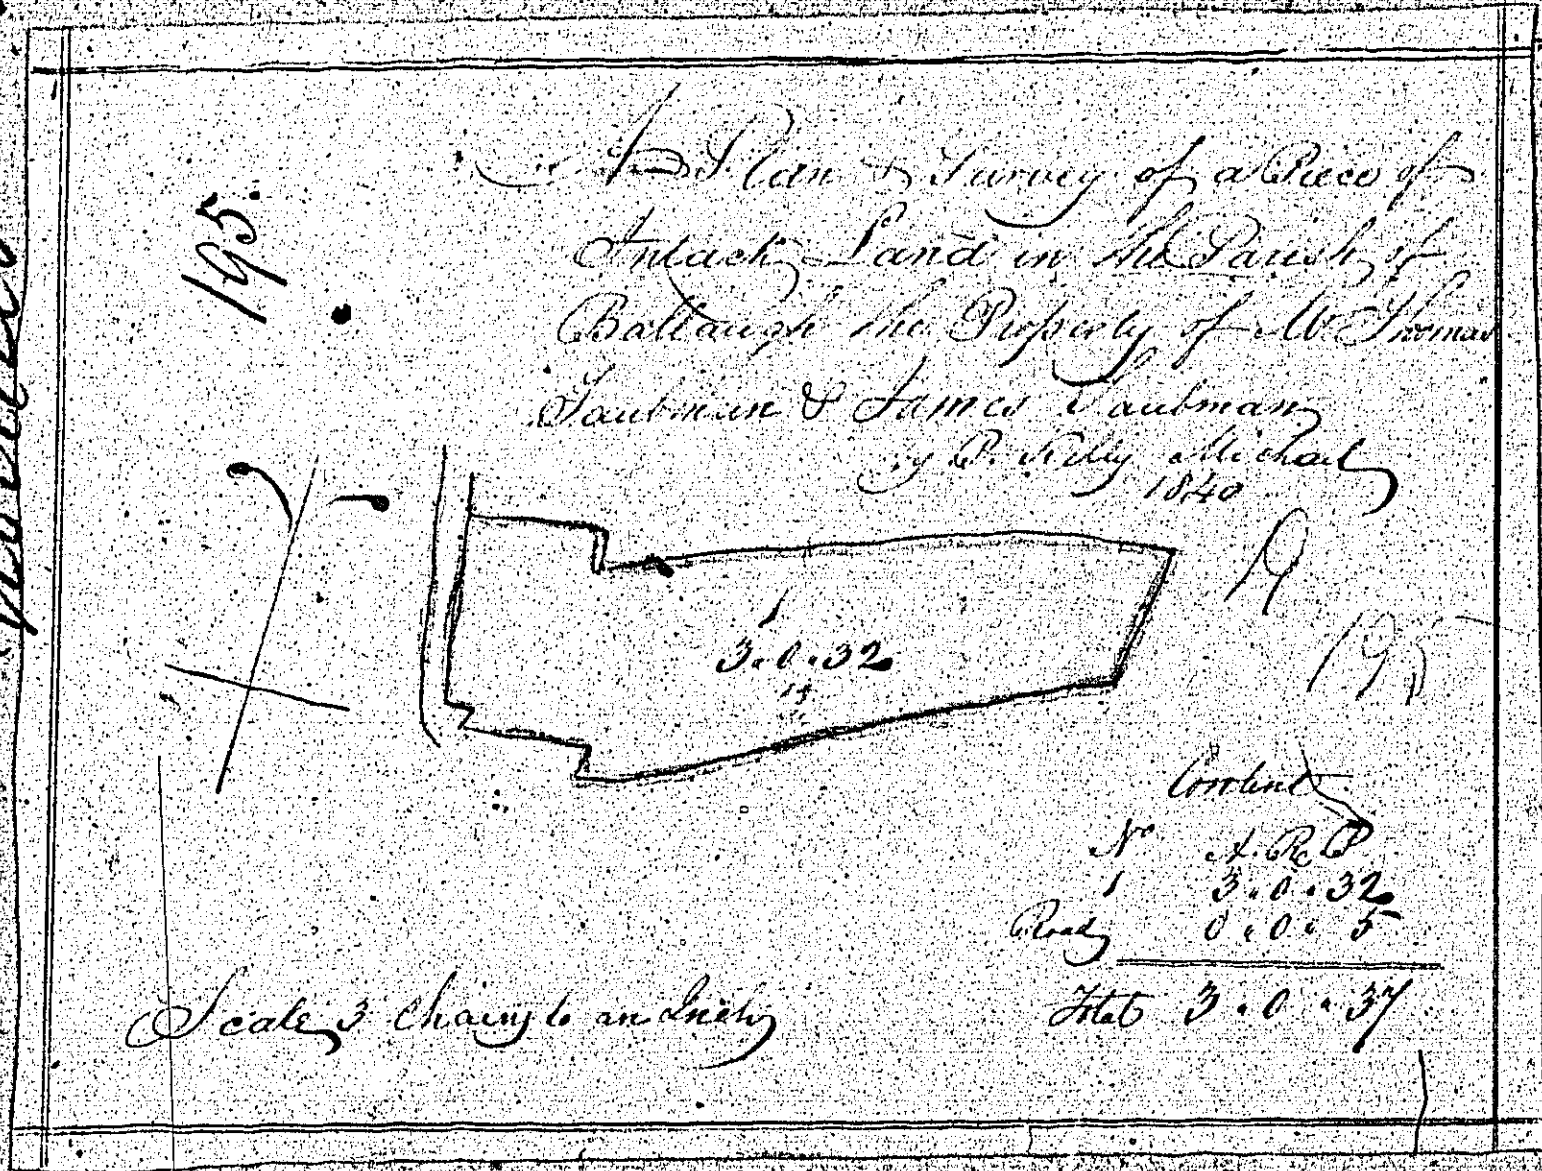 195.
A Plan & Survey of a Piece of
Intack Land in the Parish of
Ballaugh the Property of Mr Thomas
Taubman & James Taubman
by P. Kelly Michael
1840
19
1
3.0.32
195
Content
No A. R. P
1 3.0.32
Road 0.0.5
Total 3.0.37
Scale 3 Chains to an Inch